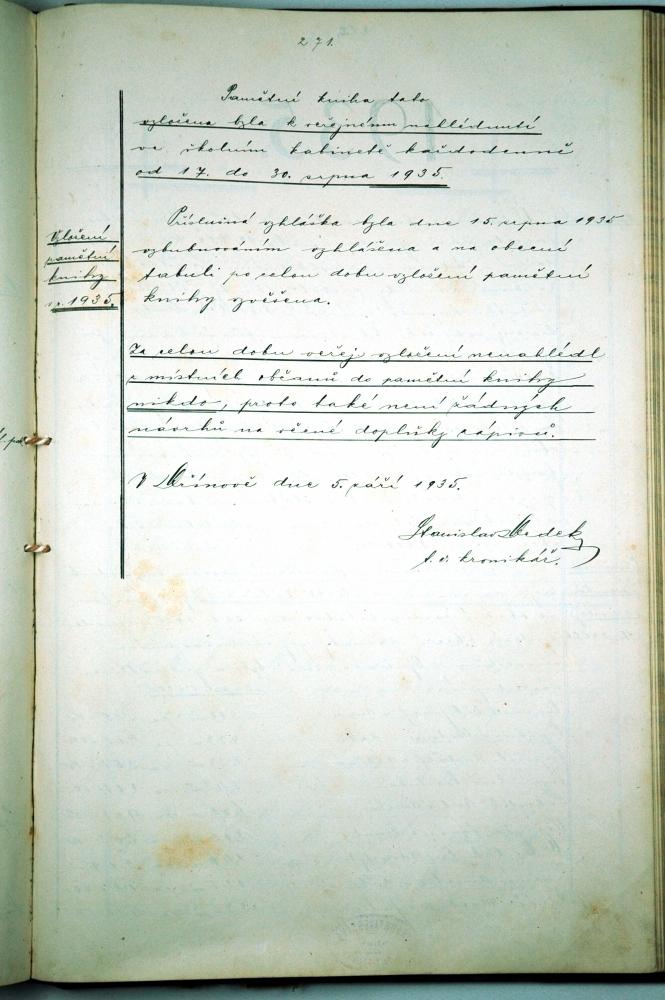 271.
Pamětní kniha tato
vyložena byla k veřejnému nahlédnutí
ve školním kabinetě každodenně
od 17. do 30. srpna 1935.
Vyložení
pamětní
knihy
r. 1935.
Příslušná vyhláška byla dne 15. srpna 1935
vybubnováním vyhlášena a na obecní
tabuli po celou dobu vyložení pamětní
knihy vyvěšena.
Za celou dobu veřej. vyložení nenahlédl
z místních občanů do pamětní knihy
nikdo, proto také není žádných
návrhů na věcné doplňky zápisů.
V dne 5. září 1935.
Stanislav
t. č. kronikář.